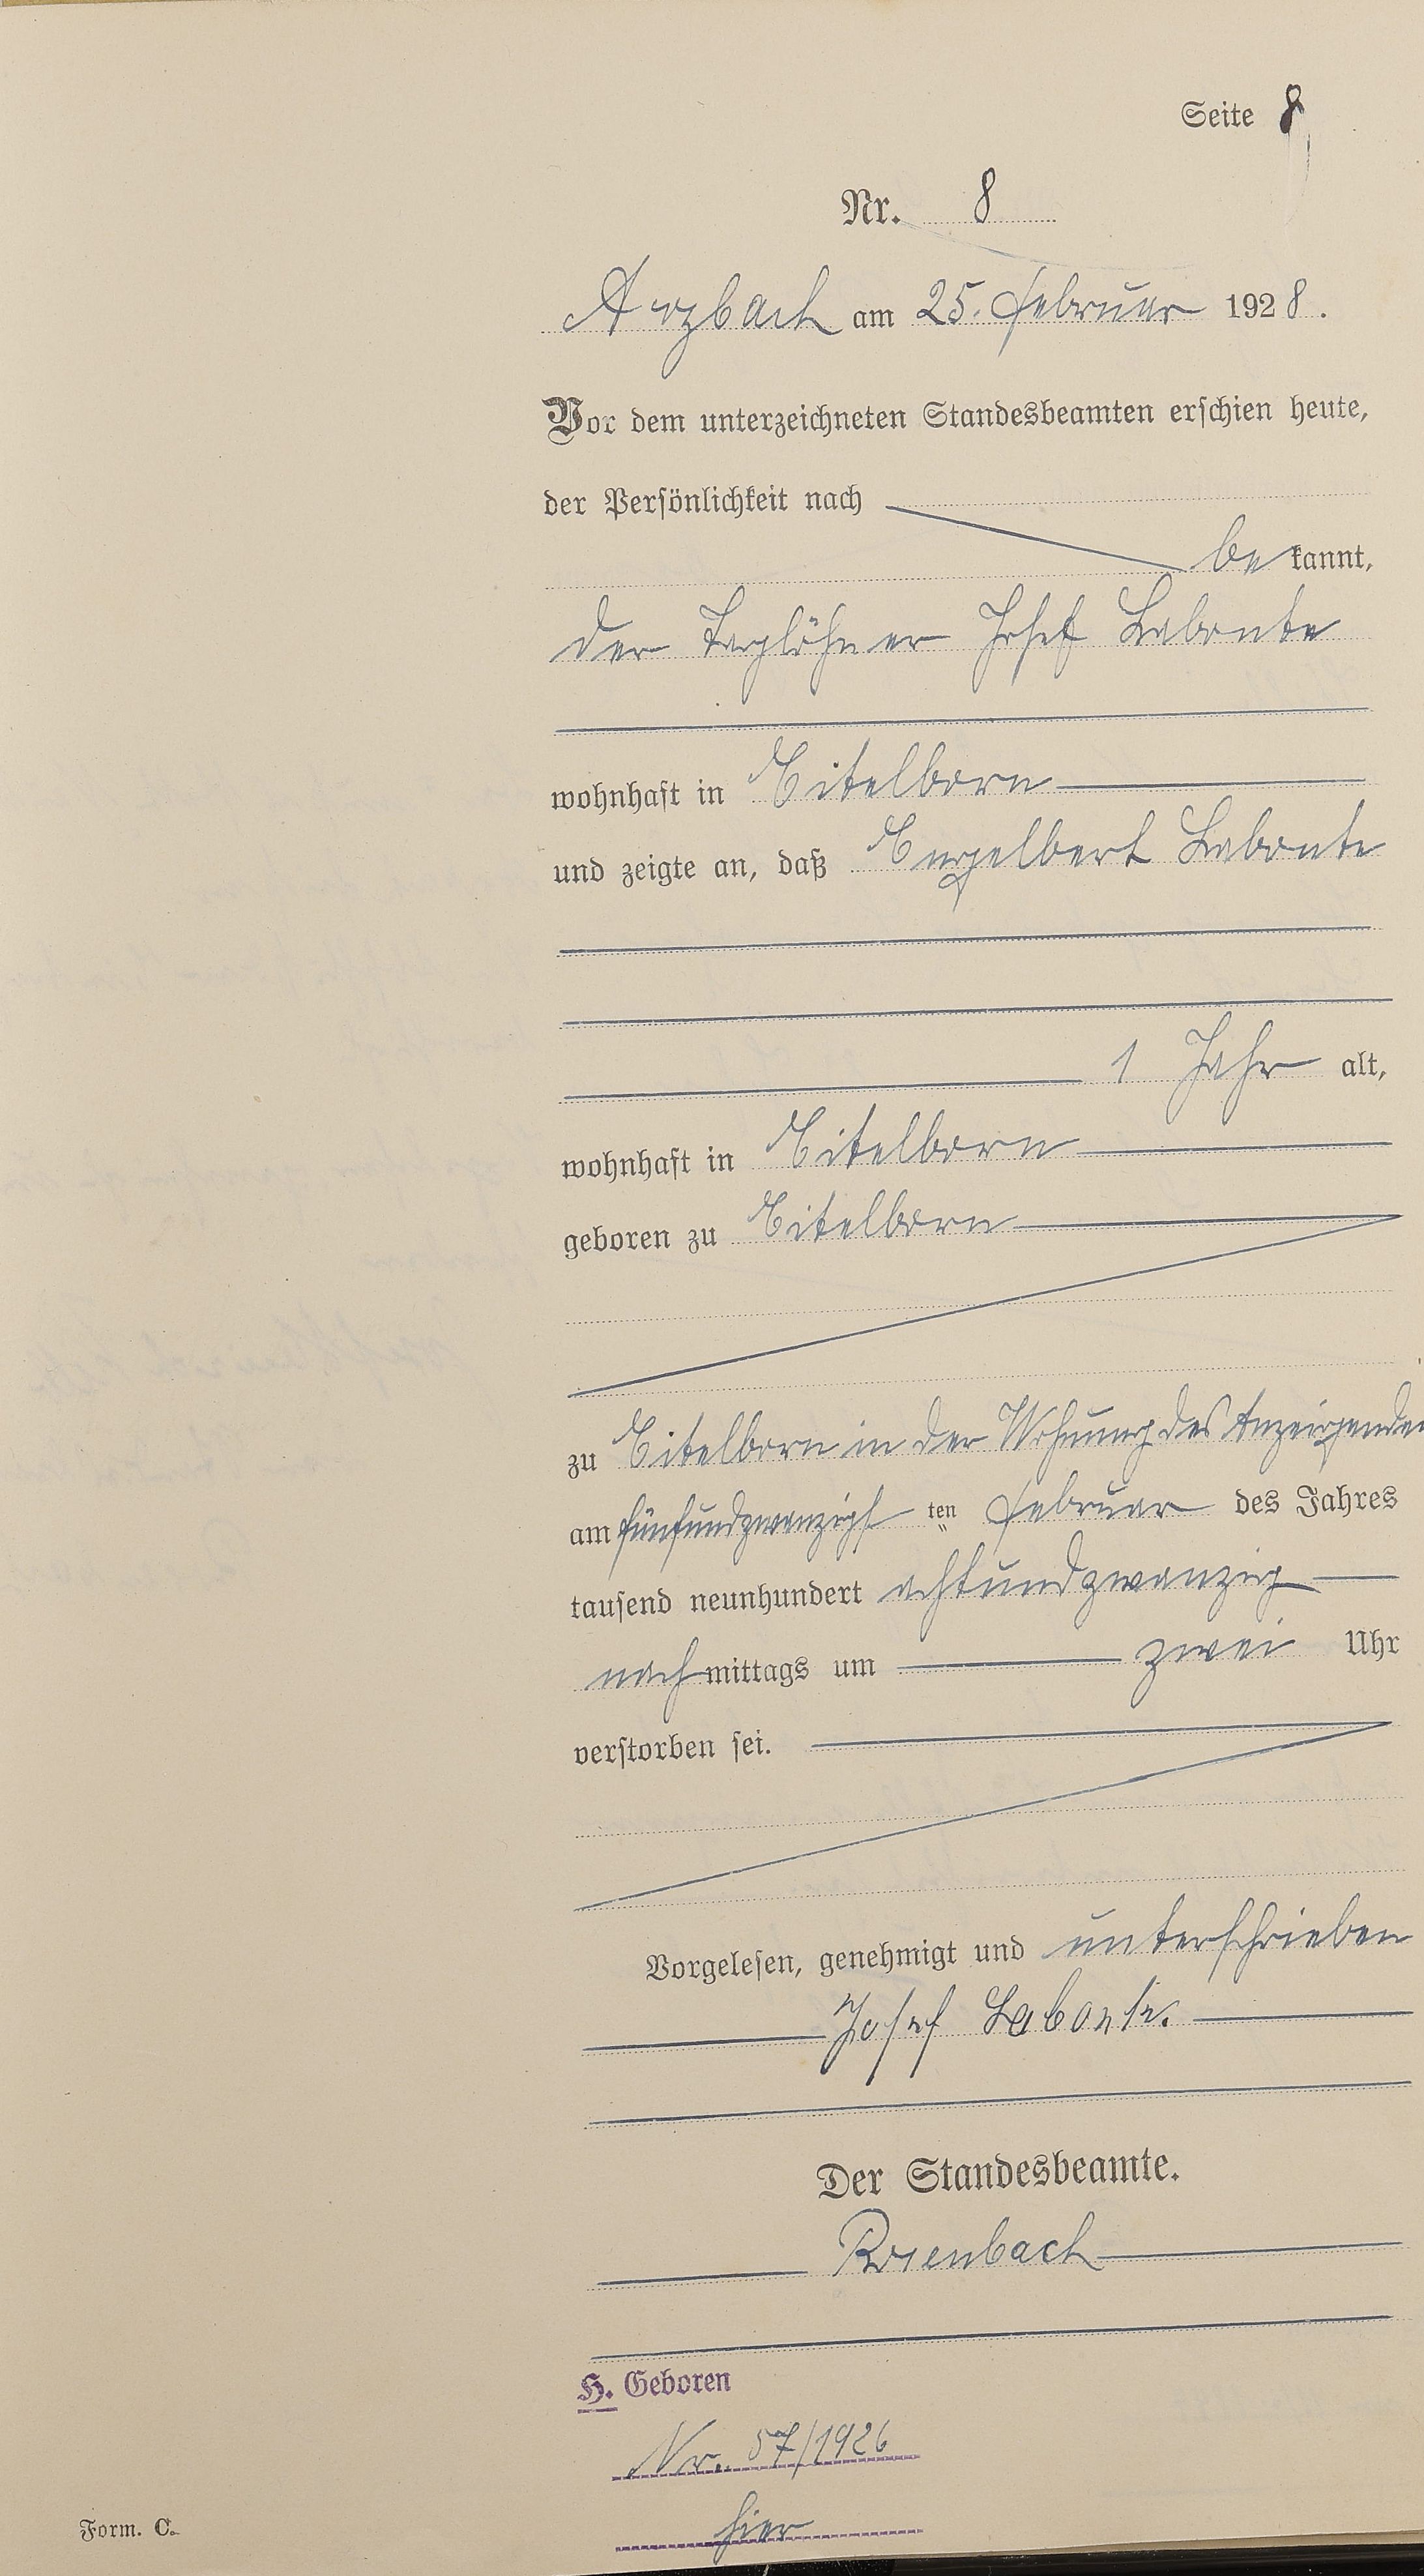 Seite 8
Nr. 8
Arzbach am 25. Februar 1928.
Vor dem unterzeichneten Standesbeamten erschien heute,
der Persönlichkeit nach
bekannt,
der Taglöhner Josef Labonte
wohnhaft in Eitelborn
und zeigte an, daß Engelbert Labonte
1 Jahr alt,
wohnhaft in Eitelborn
geboren zu Eitelborn
zu Eitelborn in der Wohnung des Anzeigenden
am fünfundzwanzigsten Februar des Jahres
tausend neunhundert achtundzwanzig
nachmittags um zwei Uhr
verstorben sei.
Vorgelesen, genehmigt und unterschrieben
Josef Labonte.
Der Standesbeamte.
H. Geboren
Nr. 57/1926
hier
Form. C.